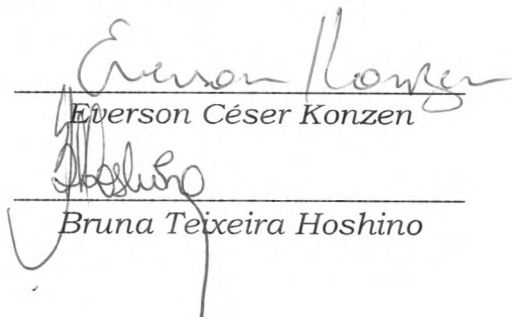 Everson Konzen
Everson Céser Konzen
Hoshino
Bruna Teixeira Hoshino